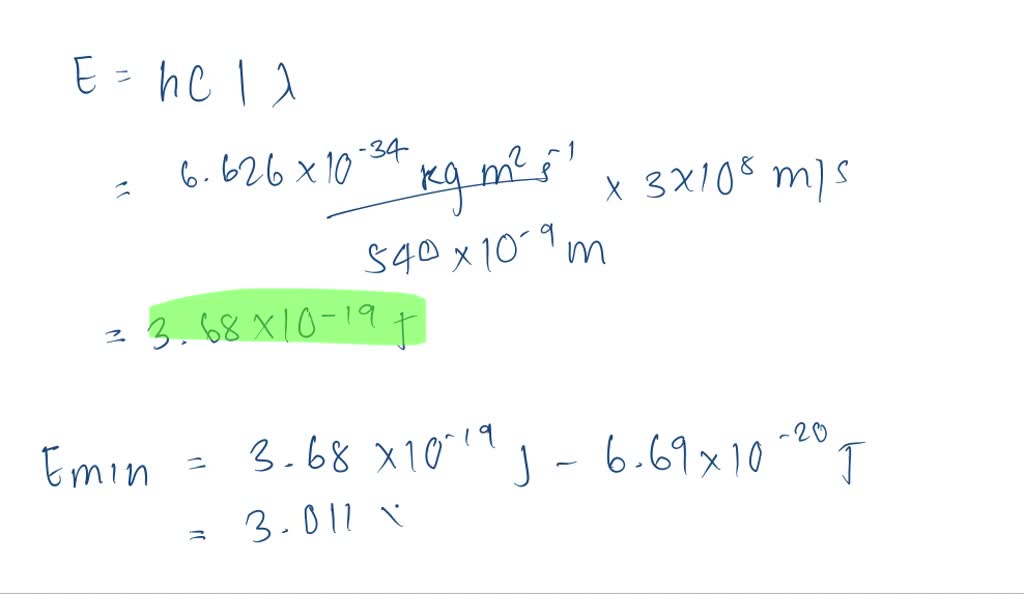 E = hC | λ
= 6.626 × 10⁻³⁴ kg m² s⁻¹ × 3×10⁸ m|s
540 × 10⁻⁹ m
= 3.68 ×10⁻¹⁹ J
Emin = 3.68 ×10⁻¹⁹ J − 6.69 × 10⁻²⁰ J
= 3.011